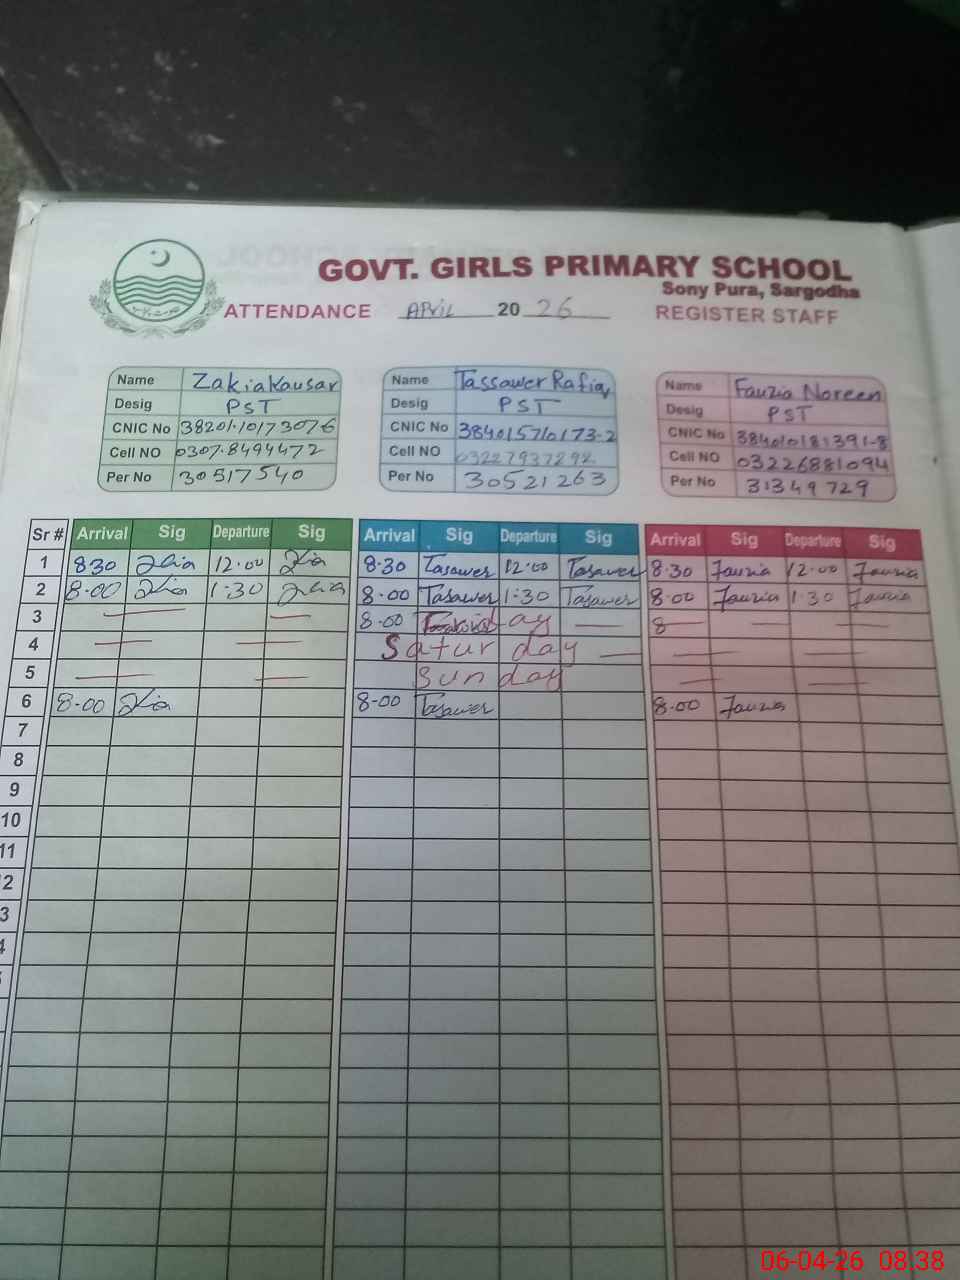 GOVT. GIRLS PRIMARY SCHOOL
Sony Pura, Sargodha
ATTENDANCE APRIL 20 26 REGISTER STAFF
Name Zakia Kausar
Desig PST
CNIC No 38201-10173076
Cell NO 0307-8494472
Per No 30517540
Name Tassawer Rafiq
Desig PST
CNIC No 384015710173-2
Cell NO 03227937292
Per No 30521263
Name Fauzia Noreen
Desig PST
CNIC No 384010181391-8
Cell NO 03226881094
Per No 31349729
Sr # Arrival Sig Departure Sig Arrival Sig Departure Sig Arrival Sig Departure Sig
1 8:30 12:00 8:30 Tasawer 12:00 Tasawer 8:30 Fauzia 12:00 Fauzia
2 8:00 1:30 8:00 Tasawer 1:30 Tasawer 8:00 Fauzia 1:30 Fauzia
3 8:00 ay 8
4 Satur day
5 Sunday
6 8:00 8:00 Tasawer 8:00 Fauzia
7
8
9
10
11
2
3
4
06-04-26 08.38